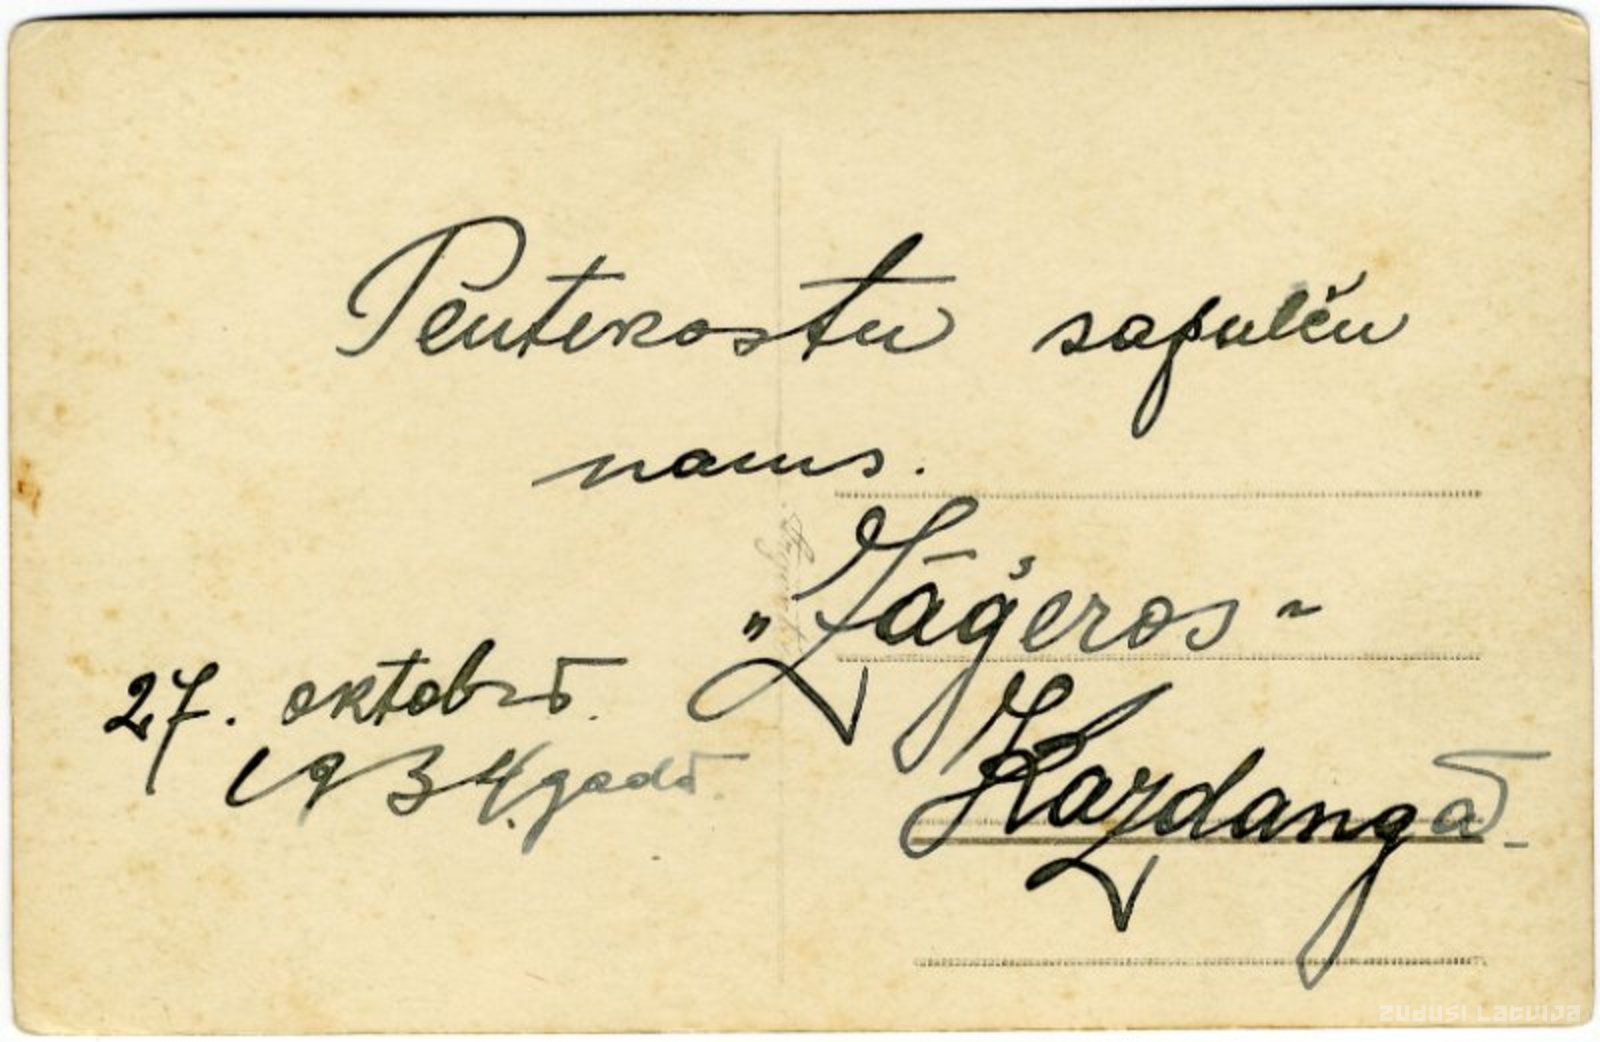 Pentekostu sapulču
nams.
"Zāģeros"
27. oktobrī.
1934. gadā.
Kazdangā.
ZUDUSI LATVIJA